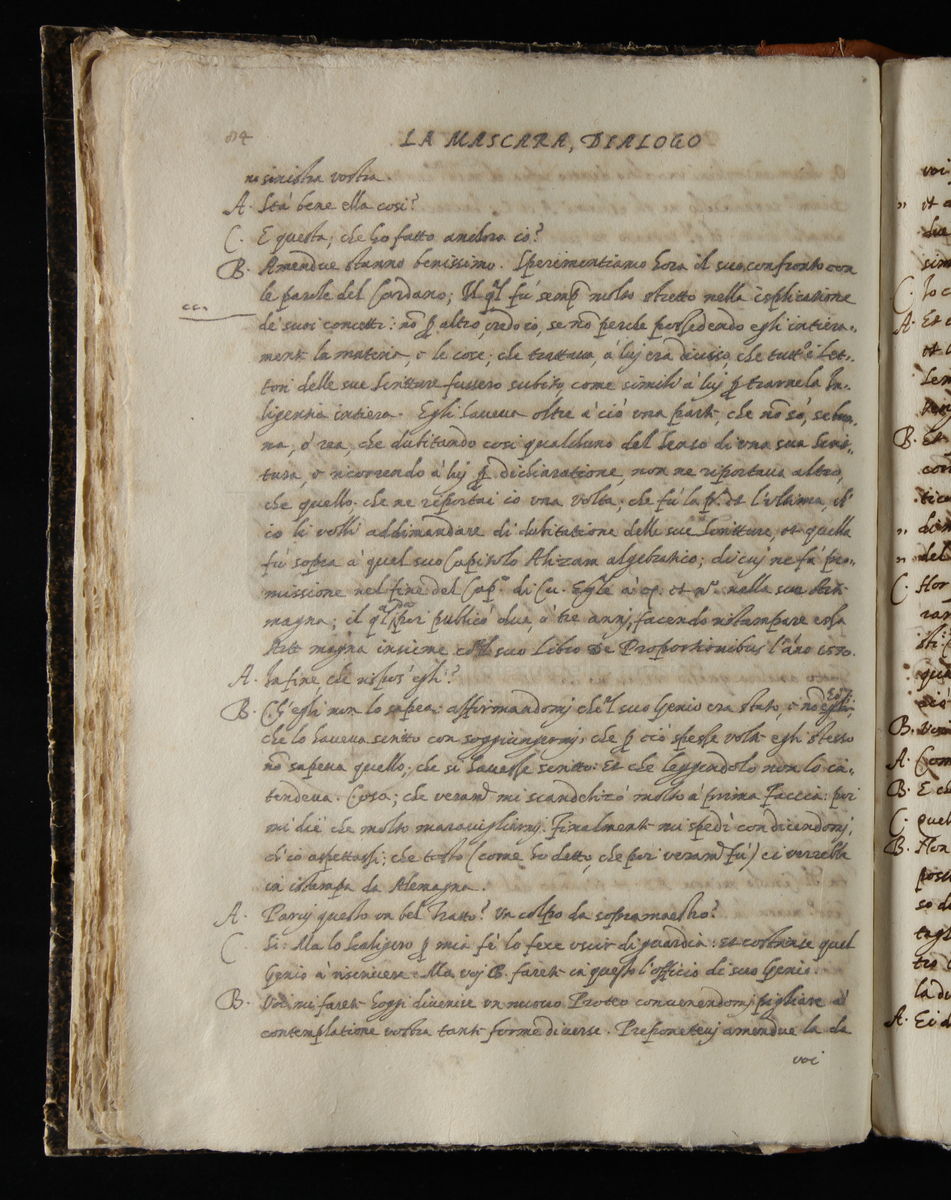 84
LA MASCARA, DIALOGO
na sinistra vostra.
A. Stà bene ella così?
C. E questa; che hò fatto anchora io?
B. Amendue stanno benissimo. Sperimentiamo hora il suo confronto con
le parole del Cardano; Il ql fù semp molto stretto nella isplicatione
de suoi concetti: nõ p altro, credo io, se nõ perche possedendo egli intiera-
mente la materia, e le cose, che trattava, à luj era diviso, che tutti i let-
tori delle sue scritture fussero subito, come simili à luj p trarne la In-
ligentia intiera. Egli haveva oltre à ciò una parte, che nõ sò, se buo-
na, ò rea, che dubitando così qualchuno del senso di una sua scrit-
tura, e ricorrendo à luj p dichiaratione, non ne riportava altro,
che quello, che ne riportai io una volta, che fu la pa. et l'ultima, ch'
io li volsi addimandare di dubitatione delle sue scritture, et quella
fù sopra à quel suo Capitolo Alizam algebratico; di cuj ne fà pro-
missione nel fine del Capo. di Cu. Egle à cp. et no. nella sua Arte
magna; il ql poi publicò due, ò tre annj, facendo ristampare essa
Arte magna insieme col suo Libro De Proportionibus l'ãno 1570.
A. In fine che rispos' egli?
B. Ch'egli non lo sapea: affirmandomj che'l suo Genio era stato, e nõ egli;
che lo haveva scritto con soggiungermj, che p ciò spesse volte egli stesso
nõ sapeva quello, che si havesse scritto: Et che leggendolo non lo in-
tendeva. Cosa; che veramte mi scandelizò molto à prima faccia: poi
mi diè che molto maravigliarmj. Finalmente mi spedì con dicendomj,
ch'io aspettassi; che tosto (come hò detto, che poi veramte fù) ci verrebbe
in istampa da Alemagna.
A. Parvj questo un bel Tratto? Un colpo da sopramaestro?
C. Si: Ma lo Scaligero p mia fè lo fece uscir di guardia: et costrinse quel
Genio à riscrivere. Ma voj B. farete in questo l'officio di suo Genio.
B. Voi mi farete hoggi divenire un nuovo Proteo convenendomj pigliare à
contemplatione vostra tante forme diverse. Preponetevj amendue la da
voi